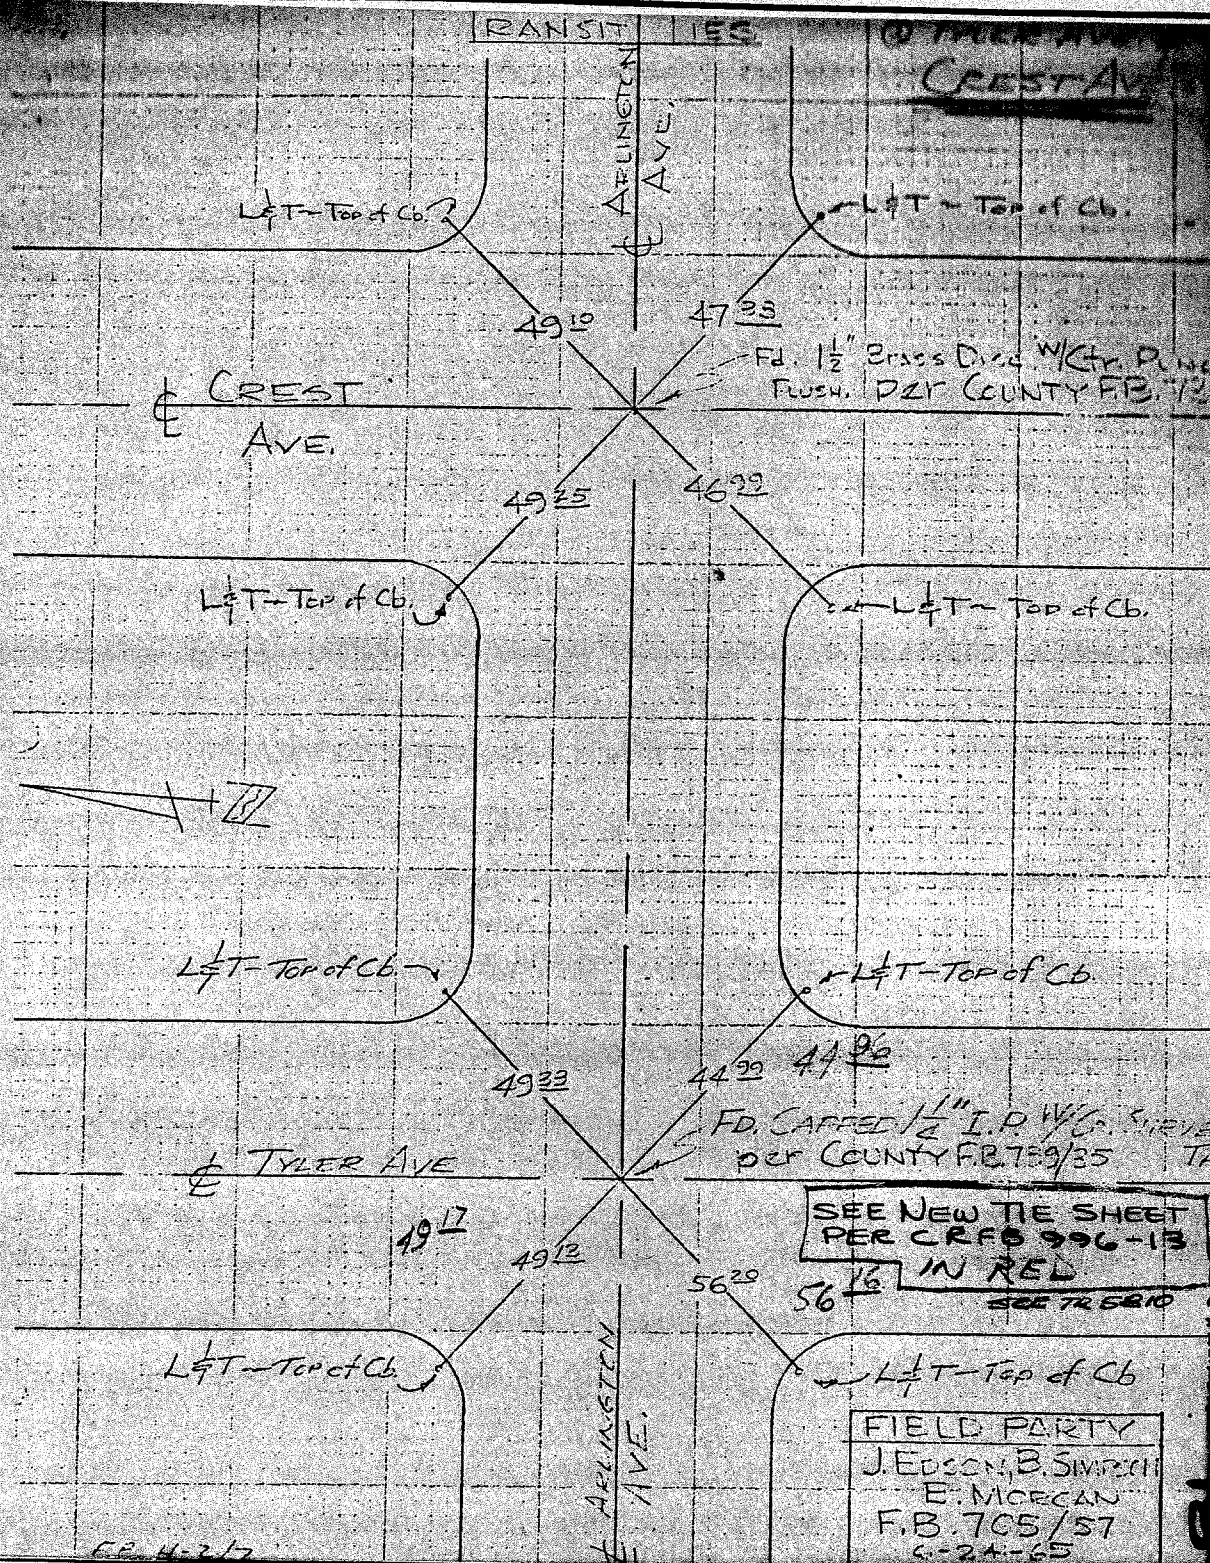 RANSIT IES
@ TYLER AVE
CREST AV
ARLINGTON
AVE.
L&T - Top of Cb.
L&T - Top of Cb.
49 10
47 33
Fd. 1 1/2" Brass Disc W/Ctr. Punc
Flush. Per County F.B.
℄ CREST
AVE.
49 25
46 99
L&T - Top of Cb.
L&T - Top of Cb.
L&T - Top of Cb.
L&T - Top of Cb.
49 33
44 99
44 96
FD. CAPPED 1 1/2" I.P. W/
per COUNTY F.B. 739/35
℄ TYLER AVE
49 17
49 12
56 20
56 16
SEE NEW TIE SHEET
PER CRFB 996-13
IN RED
SEE TR 5810
L&T - Top of Cb.
L&T - Top of Cb
℄ ARLINGTON
AVE.
FIELD PARTY
J. EDSON, B. SIMPSON
E. MORGAN
F.B. 705/57
6-24-65